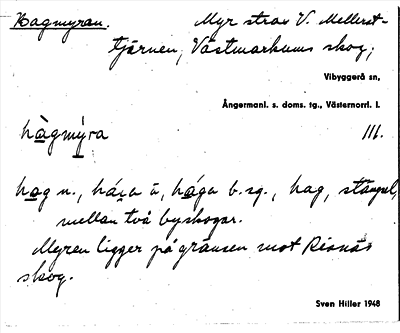 Hagmyran. Myr strax V. Mellerst-
tjärnen, Västmarkums skog,
Vibyggerå sn,
Ångermanl. s. doms. tg., Västernorrl. l.
hàgmýra III.
hag n., hága b. sg., hag, stängsel,
mellan två byskogar.
Myren ligger på gränsen mot
skog.
Sven Hiller 1948